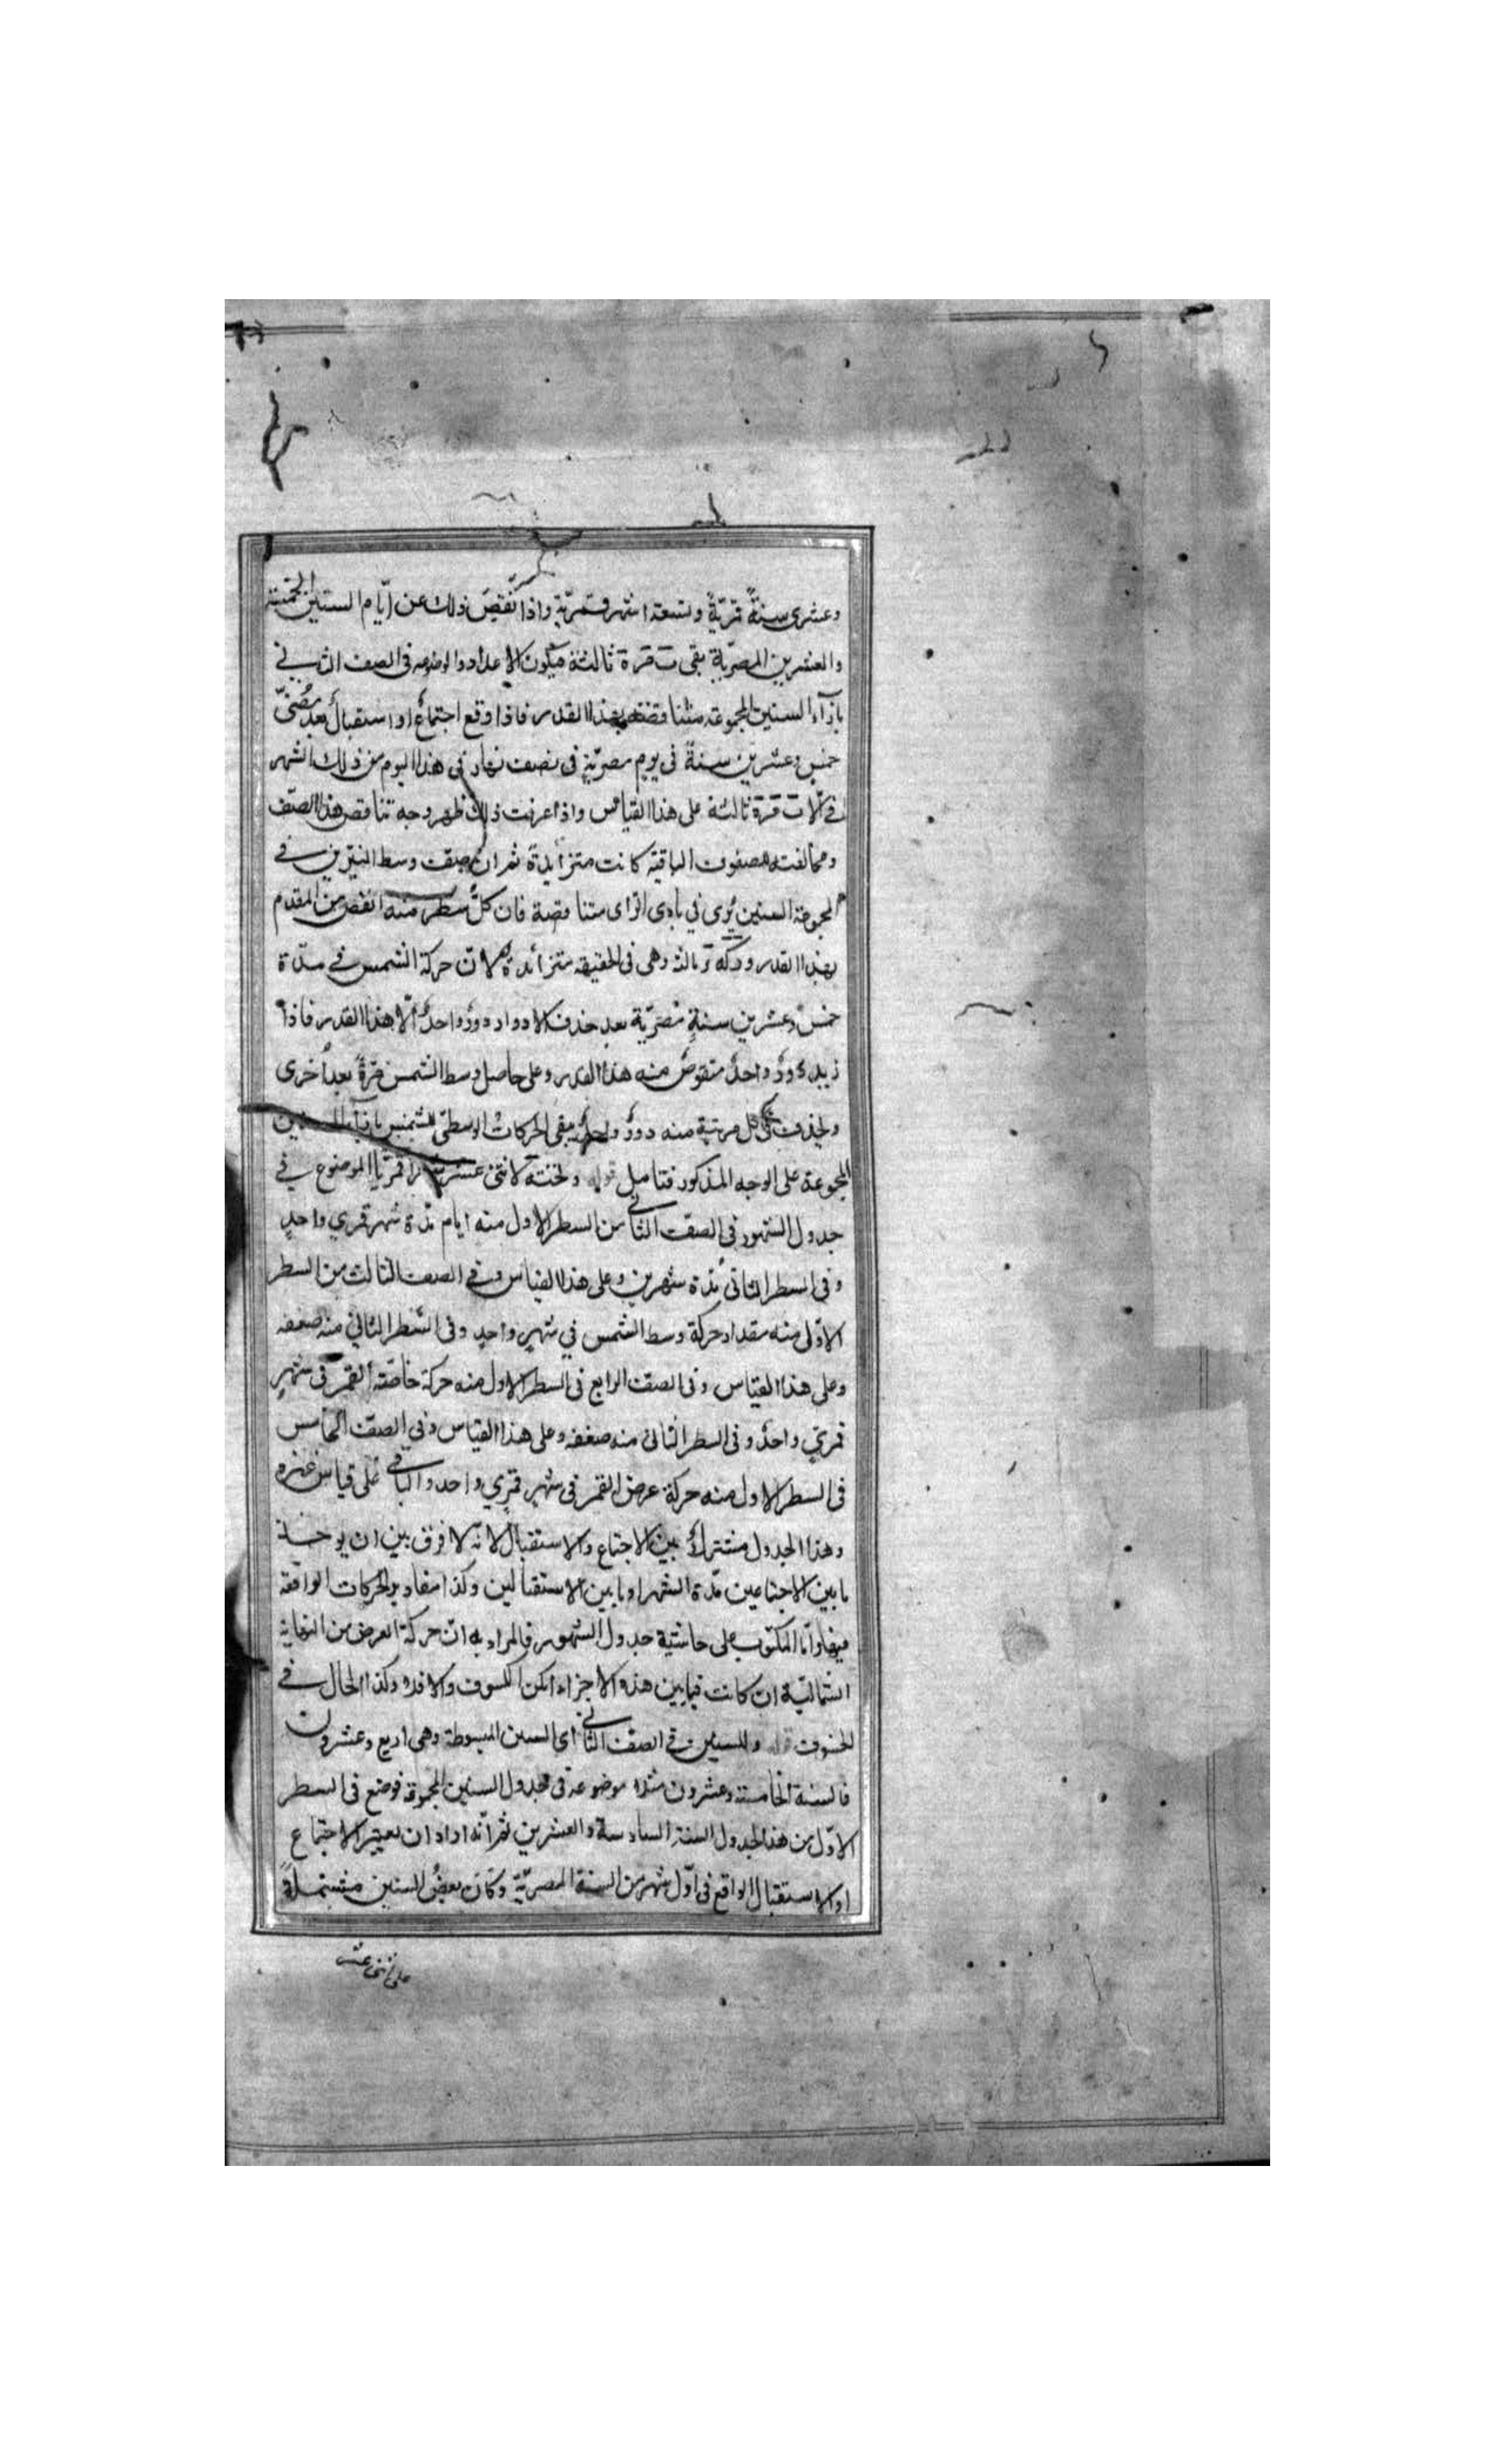 وعشرى سنةً قمريّةً وتسعة اشهر قمريّةٍ واذا نقص ذلك عن ايّام السنين الخمسة
والعشرين المصريّة بقى ثالثة فيكون الاعداد الموضوعه فى الصف الثانى
بازآء السنين المجموعه متناقصة بهذا القدر فاذا وقع اجتماعٌ او استقبالٌ بعد مُضىّ
خمسٍ وعشرين سنةً فى يومٍ مصريّةٍ فى نصف نهار فى هذا اليوم من ذلك الشهر
ثالثة على هذا القياس واذا عرفت ذلك ظهر وجه تناقص هذا الصّف
ومخالفته للصفوف الباقية كانت متزايدةً ثم ان صفّ وسط النيّرين فى
المجموعة السنين يُرى فى بادى الراى متناقصة فان كلّ سطرٍ منه انقص من المقدم
بهذا القدر ثالثة وهى فى الحقيقه متزائدة لانّ حركة الشمس فى مدّة
خمسٍ وعشرين سنةٍ مصريّة بعد حذف الادوار دورٌ واحدٌ الّا هذا القدر فاذا
زيد دورٌ واحدٌ منقوصٌ منه هذا القدر وعلى حاصل وسط الشمس مرّةً بعد اُخرى
ويحذف فى كل مرتبة منه دورٌ واحدٌ يبقى الحركات الوسطىّ للشمس بازآء السنين
المجموعة على الوجه المذكور فتامل قوله وتحته لاثنى عشر شهرًا قمريًّا الموضوع فى
جدول الشهور فى الصفّ الثانى من السطر الاول منه ايام مدّة شهر قمري واحدٍ
وفى السطر الثانى مدّة شهرين وعلى هذا القياس وفى الصف الثالث من السطر
الاوّل منه مقدار حركة وسط الشمس فى شهرٍ واحدٍ وفى السّطر الثانى منه ضعفه
وعلى هذا القياس وفى الصفّ الرابع فى السطر الاول منه حركة خاصّة القمر فى شهرٍ
قمريّ واحدٍ وفى السطر الثانى منه ضعفه وعلى هذا القياس وفى الصفّ الخامس
فى السطر الاول منه حركة عرض القمر فى شهرٍ قمري واحد والباقى على قياس غيره
وهذا الجدول مشتركٌ بين الاجتماع والاستقبال لانّه لا فرق بين ان يوخذ
ما بين الاجتماعين مدّة الشهر او ما بين الاستقبالين وكذا مقادير الحركات الواقعة
فيها وامّا المكتوب على حاشية جدول الشهور فالمراد به انّ حركة العرض من النهاية
الشماليّة ان كانت فيما بين هذه الاجزاء امكن الكسوف والا فلا وكذا الحال فى
الخسوف قوله وللسنين فى الصفّ الثانى اى السنين المبسوطة وهى اربع وعشرون
فالسنة الخامسة وعشرون منها موضوعة فى جدول السنين المجموعة فوضع فى السطر
الاوّل من هذا الجدول السنة السادسة والعشرين ثم انّه اراد ان يعتبر الاجتماع
او الاستقبال الواقع فى اوّل شهر من السنة المصريّة وكان بعضُ السنين مشتملةً
على اثنى عشر